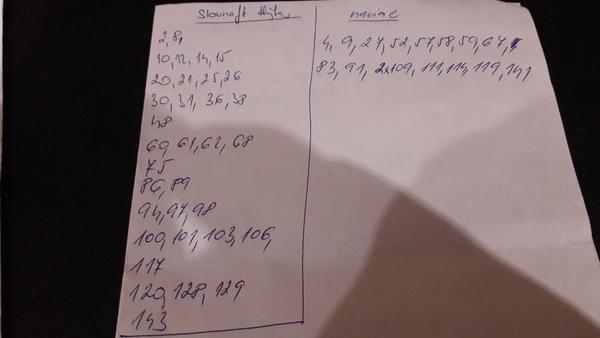 Slovnaft
2, 8,
10, 12, 14, 15
20, 21, 25, 26
30, 31, 36, 38
48
60, 61, 62, 68
75
86, 89
94, 97, 98
100, 101, 103, 106,
117
120, 128, 129
143
naviac
4, 9, 27, 52, 57, 58, 59, 67,
83, 91, 2x109, 111, 114, 119, 141